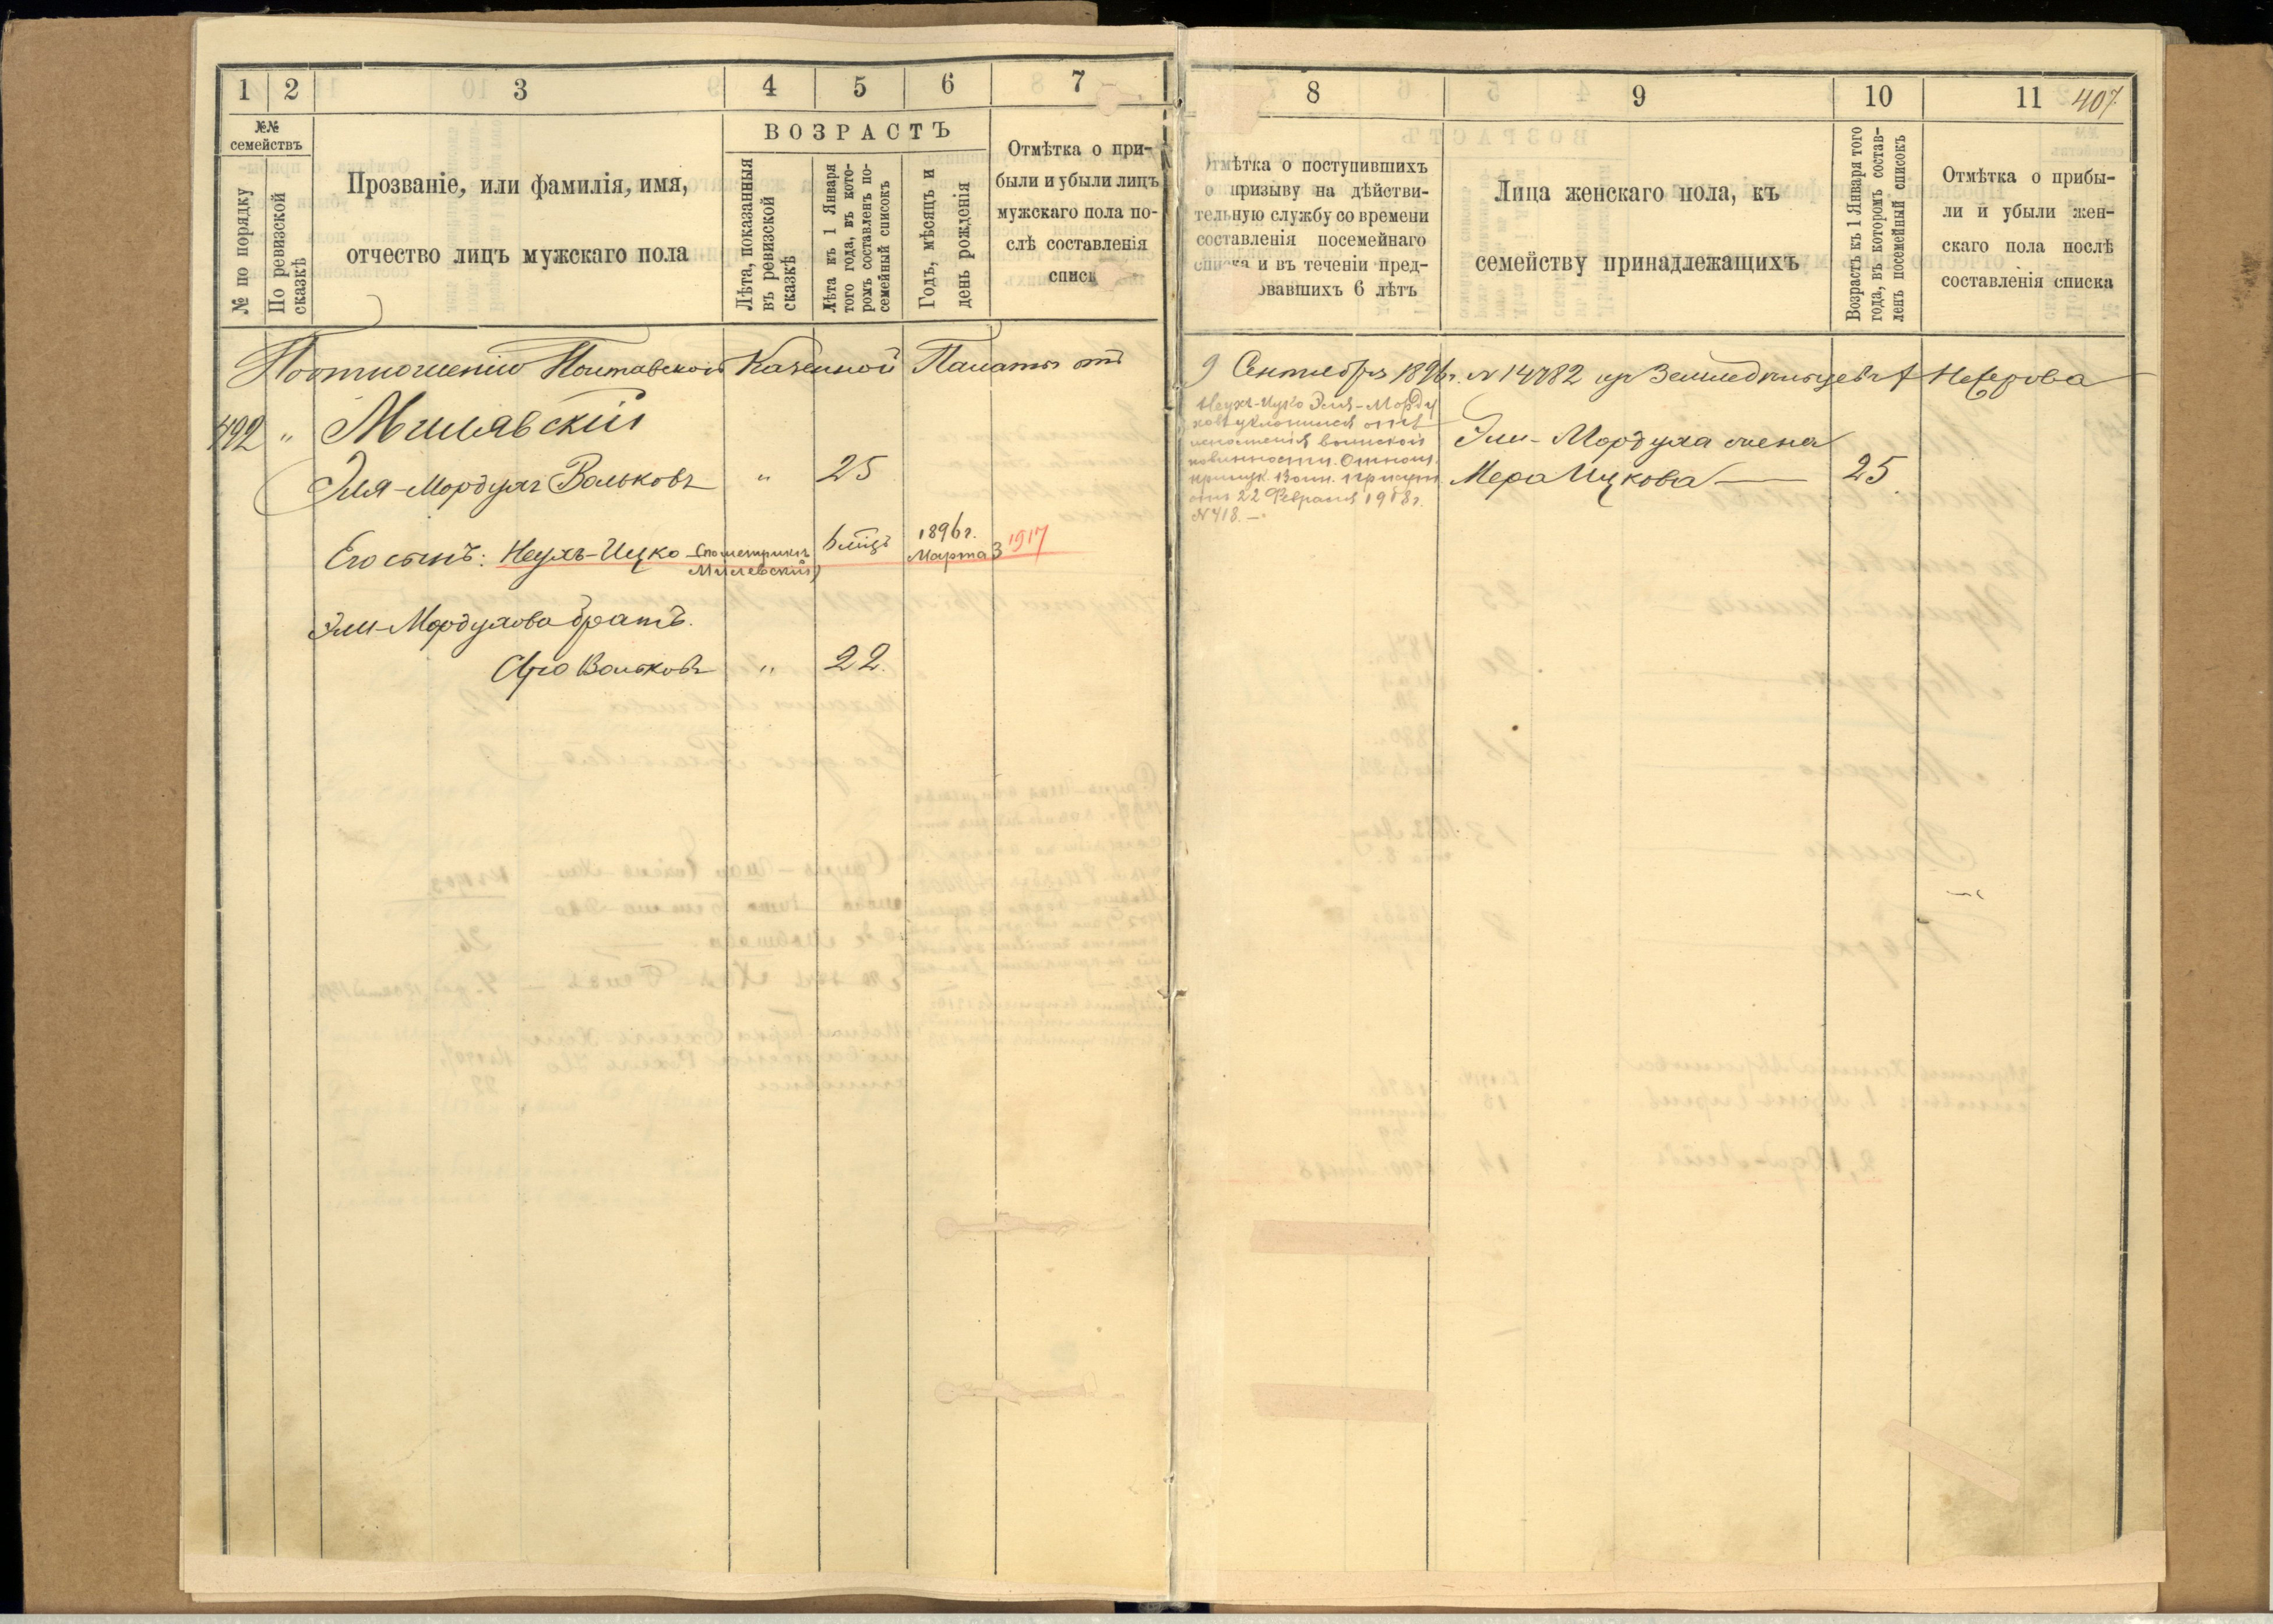 1 2 3 4 5 6 7
№№ семействъ
№ по порядку
По ревизской сказкѣ
Прозваніе, или фамилія, имя,
отчество лицъ мужскаго пола
ВОЗРАСТЪ
Лѣта, показанныя
въ ревизской
сказкѣ
Лѣта къ 1 Января
того года, въ кото-
ромъ составленъ по-
семейный списокъ
Годъ, мѣсяцъ и
день рожденія
Отмѣтка о при-
были и убыли лицъ
мужскаго пола по-
слѣ составленія
списк
Поотношенію Полтавской Казенной Палаты отъ
492 " Милявскій
Эля-Мордухъ Вольковъ " 25
Его сынъ: Неухъ-Ицко (по метрикѣ Милевскій) 6 мѣс. 1896 г. Марта 3 1917
Эли-Мордухова братъ.
Сро Вольковъ " 22.
8 9 10 11 407.
Отмѣтка о поступившихъ
о призыву на дѣйстви-
тельную службу со времени
составленія посемейнаго
списка и въ теченіи пред-
овавшихъ 6 лѣтъ
Лица женскаго пола, къ
семейству принадлежащихъ
Возрастъ къ 1 Января того
года, въ которомъ состав-
ленъ посемейный списокъ
Отмѣтка о прибы-
ли и убыли жен-
скаго пола послѣ
составленія списка
9 Сентября 1896 г. № 14782 из Земледѣльцевъ
Неухъ-Ицко Эля-Морду
ховъ уклонился отъ
исполненія воинской
повинности. Отнош.
Воин. Присут.
отъ 22 Февраля 1918 г.
№ 418. —
Эли-Мордуха жена
Мера Ицкова — 25.